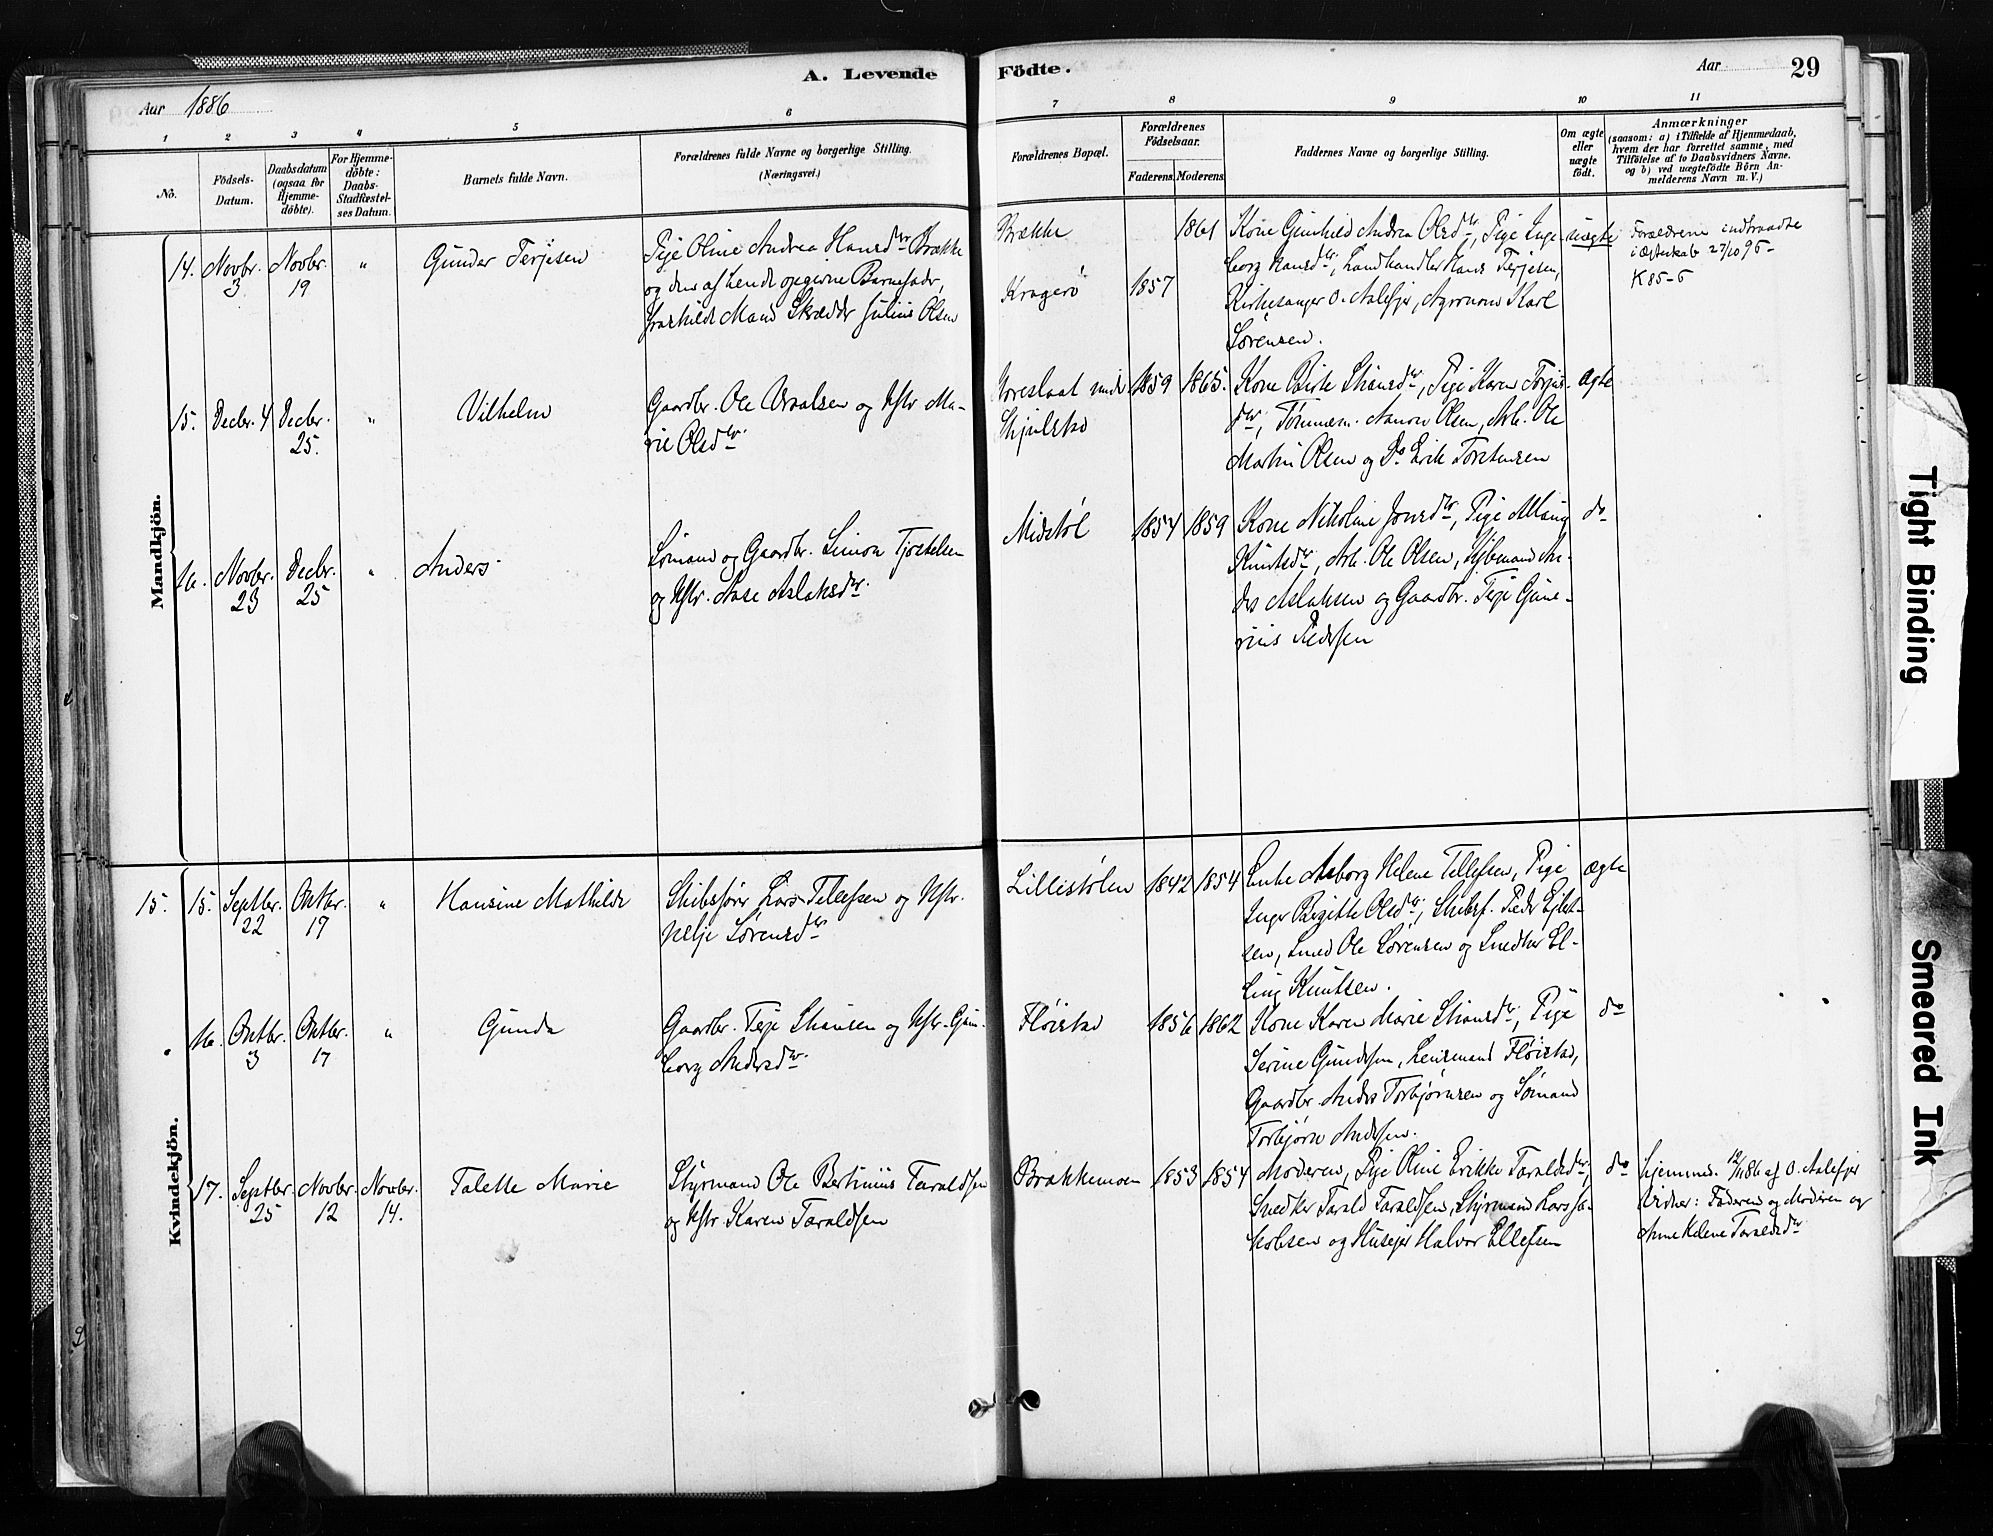 A. Levende Födte.
Aar 1886
Aar 29
1 2 3 4 5 6 7 8 9 10 11
No.
Födsels-Datum.
Daabsdatum (ogsaa for Hjemme-döbte).
For Hjemme-döbte: Daabs-Stadfæstel-ses Datum.
Barnets fulde Navn.
Forældrenes fulde Navne og borgerlige Stilling. (Næringsvei.)
Forældrenes Bopæl.
Forældrenes Födselsaar.
Faderens. Moderens.
Faddernes Navne og borgerlige Stilling.
Om ægte eller uægte født.
Anmærkninger
(saasom: a) i Tilfælde af Hjemmedaab, hvem der har forrettet samme, med Tilföielse af to Daabsvidners Navne, og b) ved uægtefödte Börn Anmelderens Navn m. V.)
Mandkjön.
14. Novbr. 3 Novbr. 19 " Gunder Terjesen
Pige Oline Andrea Hansdtr Brække
og den af hende opgivne Barnefader,
Skrædder Julius Olsen
Brække
Kragerö 1857 1861
Kone Gunhild Andrea Olsdtr, Pige Inge-
borg Hansdtr, Landhandler Hans Terjesen,
Kirkesanger O. Aalefjær, Agronom Karl
Sörensen.
uægte
Forældrene indtraadte
i Ægteskab 27/10 95 -
K 85-5
15. Decbr. 4 Decbr. 25. " Vilhelm
Gaardbr. Ole Osvalsen og Hstr Ma-
rie Olsdtr.
1859 1865.
Kone Birte Stiansdtr, Pige Karen Terjes-
dtr, Tömmerm. Aanon Olsen, Arb. Ole
Martin Olsen og Do Erik Torstensen
ægte
16. Novbr. 23 Decbr. 25 " Anders
Sömand og Gaardbr. Simon Tjostelsen
og Hstr. Aase Aslaksdtr.
Midstöl 1854 1859
Kone Nikoline Jonsdtr, Pige
Knutsdtr, Arb. Ole Olsen, Kjöbmand An-
ders Aslaksen og Gaardbr. Terje Gune-
rius Pedersen
do
Kvindekjön.
15. 15. Septbr. 22 Oktbr. 17 " Hansine Mathilde
Skibsförer Lars Tellefsen og Hstr.
Helje Sörensdtr
Lillestölen 1842 1854
Enke Aaborg Helene Tellefsen, Pige
Inger Birgitte Olsdtr, Skibsf. Peder Eilert-
sen, Smed Ole Sörensen og Snedker El-
ling Knutsen.
ægte
16. Oktbr. 3 Oktbr. 17 " Gunda
Gaardbr. Terje Stiansen og Hstr. Gun-
borg Andersdtr.
Flöistad 1856 1862
Kone Karen Marie Stiansdtr, Pige
Serine Gundersen, Lensmand Flöistad,
Gaardbr. Anders Torbjörnsen og Sömand
Torbjörn Andersen.
do
17. Septbr. 25 Novbr. 12 Novbr. 14. Talette Marie
Styrmand Ole Bertinius Taraldsen
og Hstr Karen Taraldsen
Brækkemoen 1853 1854
Moderen, Pige Oline Erikke Taraldsdtr,
Snedker Tarald Taraldsen, Styrmand Lars Ja-
kobsen og Husejer Halvor Ellefsen
do
Hjemmed. 12/11 86 af O. Aalefjær
Vidner: Faderen og Moderen og
Anne Helene Taraldsdtr
Tight Binding
Smeared Ink